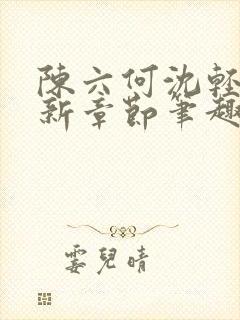 陳六何沈輕
新章節筆趣
霎兒晴